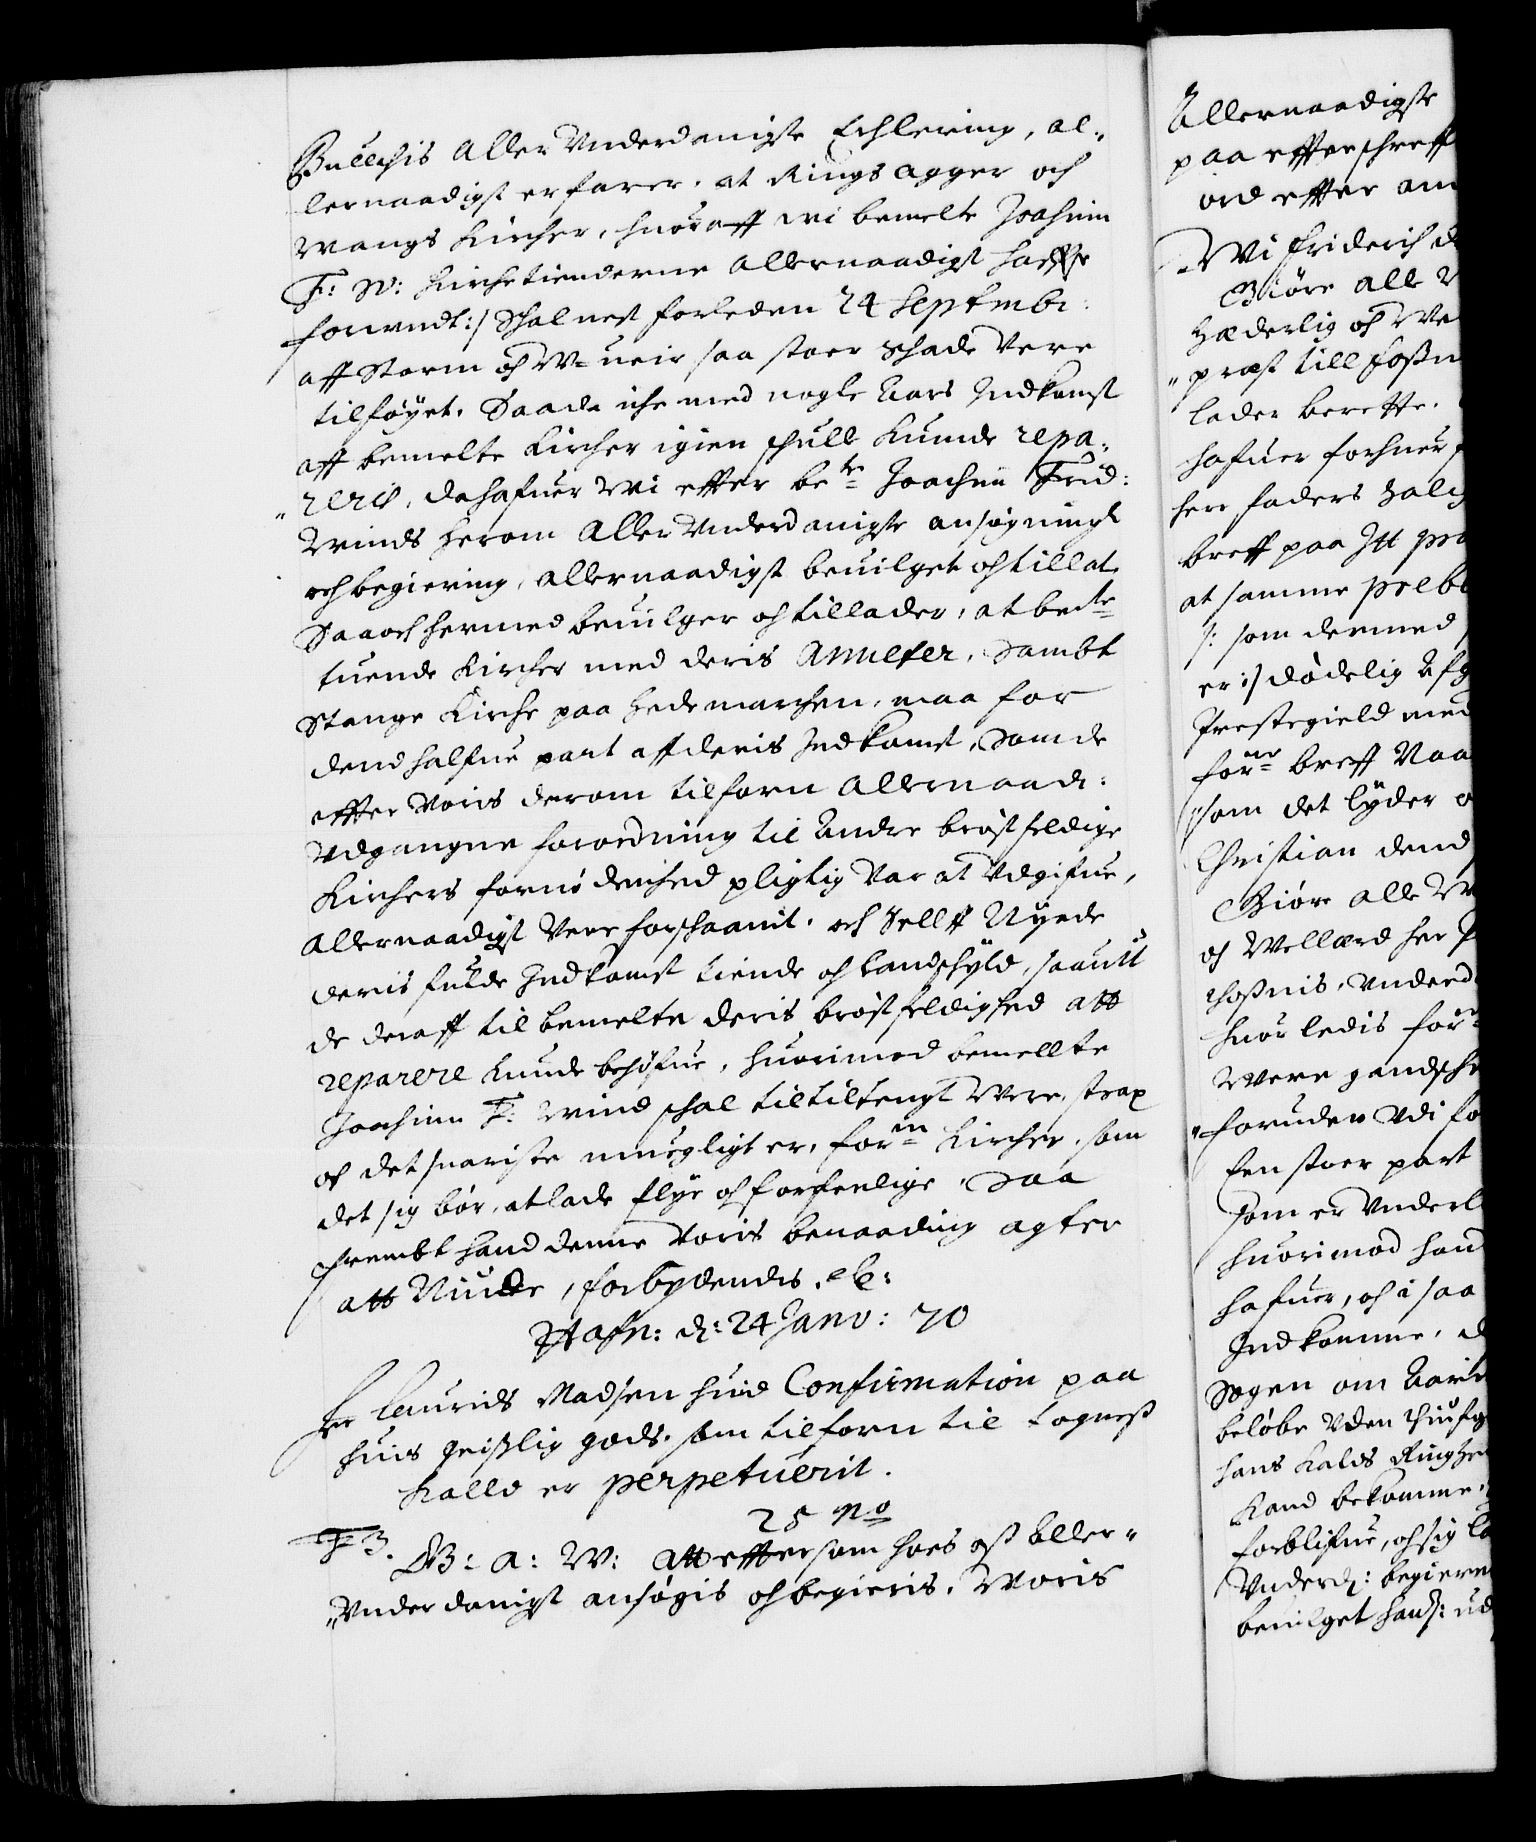 Bullchis Aller Underdanigste Erklering, al-
lernaadigst erfarer, at Rings agger och
Wangs Kircher, huoraff wi bemelte Joachim
F: W: Kirchetienderne Allernaadigst haffr
forundt:/ Schal nest forleden 24 Septembr:
aff Storm och W= ueir saa stoer Schade Vere
tilføyet. Saa de iche med nogle Aars Indkomst
aff bemelte Kircher igien schulle kunde repa-
reris, da hafuer Wi efter bete Joachim Frid:
Winds herom Aller Underdanigste ansøgning
och begiering, allernaadigst beuilget och tillat
Saa och hermed beuilger och tillader, at bemte
tuende Kircher med deris Annexer, sambt
Stange Kirche paa Hedemarchen, maa for
dend halfue part aff deris Indkomst, som de
effter Voris derom tilforn Allernaad:
Udgangne forordning til Andre brøstfeldige
Kirchers fornødenhed pligtig Var at Udgifue,
Allernaadigst Vere forschaanit, och Sellff Nyde
deris fulde Indkomst tiende och landschyld, saauit
de deraff til bemelte deris brøstfeldighed att
reparere kunde behøfue, huorimod bemellte
Joachim F: Wind schal tiltiltengt Were, strax
och det snariste muegligt er, forne Kircher, som
det sig bør, at lade flye och forferdige. Saa
frembt hand denne Voris benaading agter
att Niude, forbydendis. etc:
Hafn: d: 24 Janv: 70
Her Laurids Madsen huid Confirmation paa
huis geistlig gods, som tilforn til Sognest
Kalld er perpetuerit.
25 No
F 3. G: A: W: Att effterson hoes oss Aller-
Underdanigst ansøgis och begieris, Woris
Allernaadigste
paa efterschreff
ord effter an
Wi Friderich d
Giøre Alle
Hæderlig och We
præst till Fossn
lader berette.
hafuer forhuer
her faders Salig
breff paa Itt pr
at samme preb
/: som dermed
er:/ dødelig Afg
Prestegield med
forne breff Naa
som det lyder o
Christian dend
Giøre Alle W
och Wellærd her P
Fosnis, Underd
huorledis for
Were gandsche
foruden Udi fo
Een stoer part
som er Underl
huorimod han
hafuer, och i saa
Indkomme, d
Sogen om Aarit
beløbe Uden
hans Kalds Ringhe
Kand bekomme,
forblifue, och sig
Underd: begieren
beuilget hafu: ud